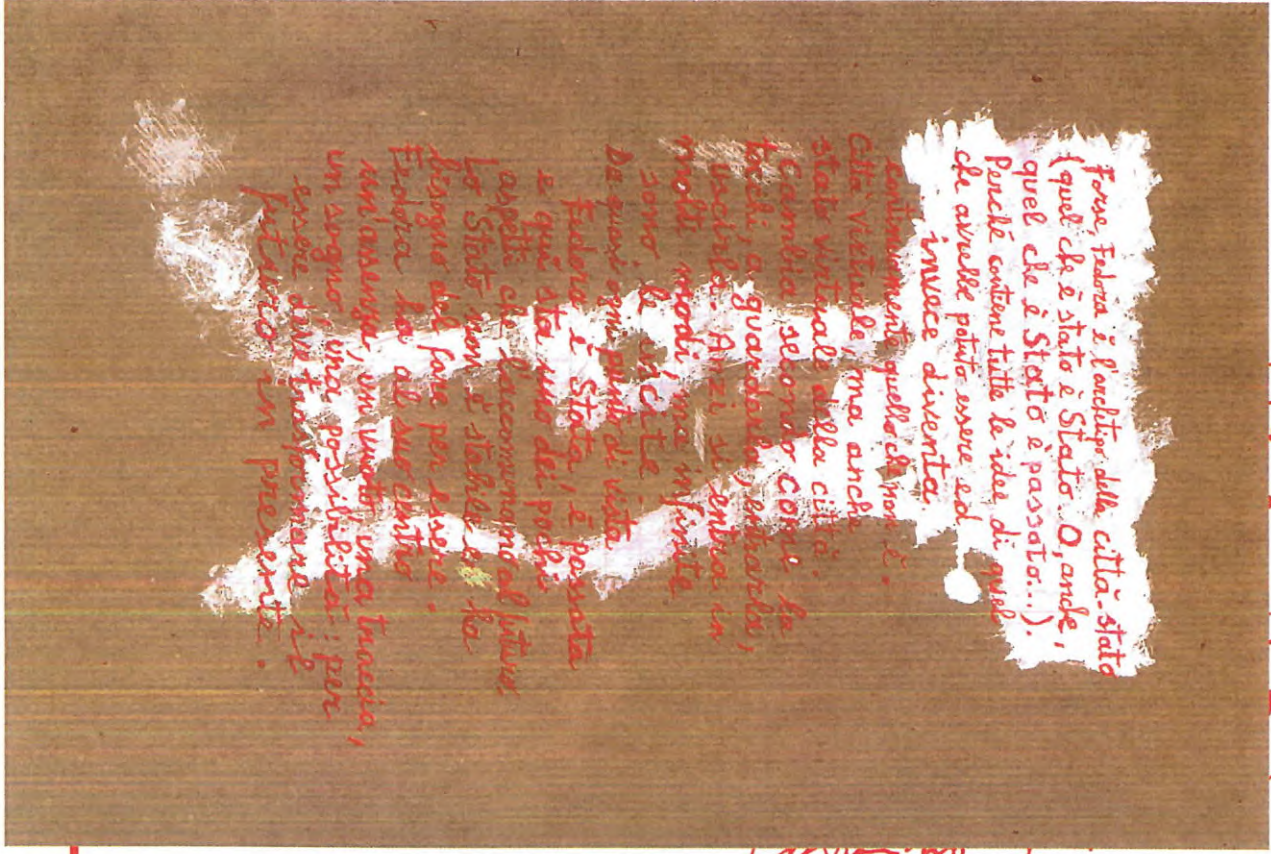 Forse, Fedora è l'archetipo della città-stato
(quel che è stato è Stato. O, anche,
quel che è Stato è passato...).
Perché contiene tutte le idee di quel
che avrebbe potuto essere ed
invece diventa
continuamente quello che non è.
Città virtuale, ma anche
stato virtuale della città.
Cambia secondo come la
tocchi, a guardarla, entrarla,
uscirla. Anzi si entra in
molti modi ma infinite
sono le uscite
Da quasi ogni punto di vista
Fedora è Stata, è passata
e qui sta uno dei pochi
aspetti che l'accomunano al futuro
Lo Stato non è stabile e ha
bisogno del fare per essere.
Fedora ha al suo centro
un'assenza, un vuoto, una traccia,
un sogno, una possibilità: per
essere deve trasformare il
futuro in presente.